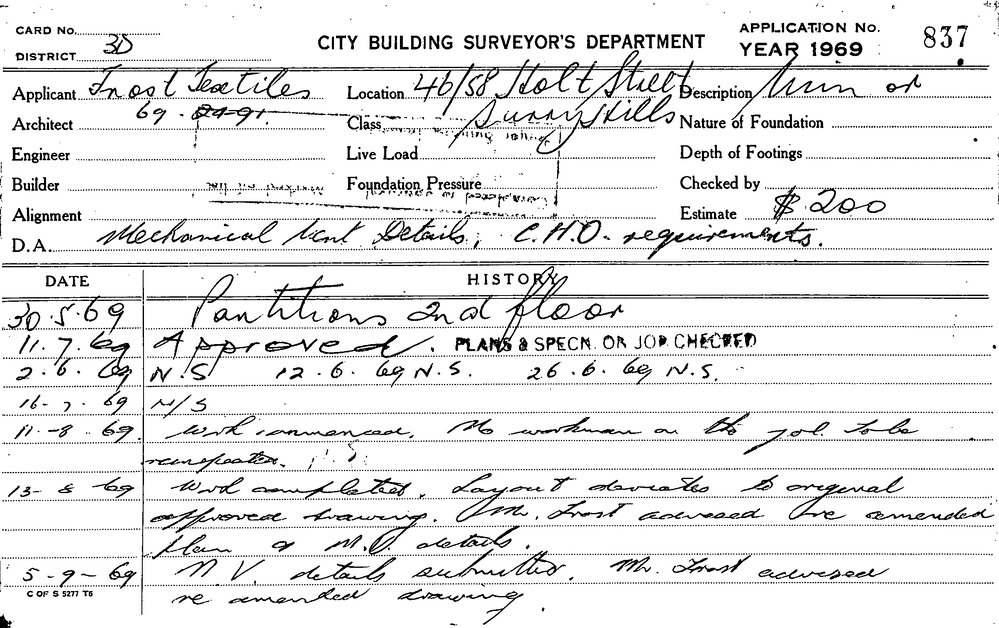 CARD No.
DISTRICT 3D
CITY BUILDING SURVEYOR'S DEPARTMENT
APPLICATION No. 837
YEAR 1969
Applicant Frost Textiles
Location 46/58 Holt Street
Surry Hills
Description Min or
Architect 69.
Class
Nature of Foundation
Engineer
Live Load
Depth of Footings
Builder
Foundation Pressure
Checked by
Alignment
Estimate $200
D.A. Mechanical Vent Details, C.H.O. requirements.
DATE HISTORY
30.5.69 Partitions 2nd floor
11.7.69 Approved. PLANS & SPECN. ON JOB CHECKED
2.6.69 N.S. 12.6.69 N.S. 26.6.69 N.S.
16-7.69 N/S
11-8.69 Work commenced. No workman on the job. To be
reinspected.
13-8 69 Work completed. Layout deviates to original
approved drawing. Mr. Frost advised re amended
plan & M.V. details.
5-9-69 M.V. details submitted. Mr. Frost advised
re amended drawing.
C OF S 5277 T6